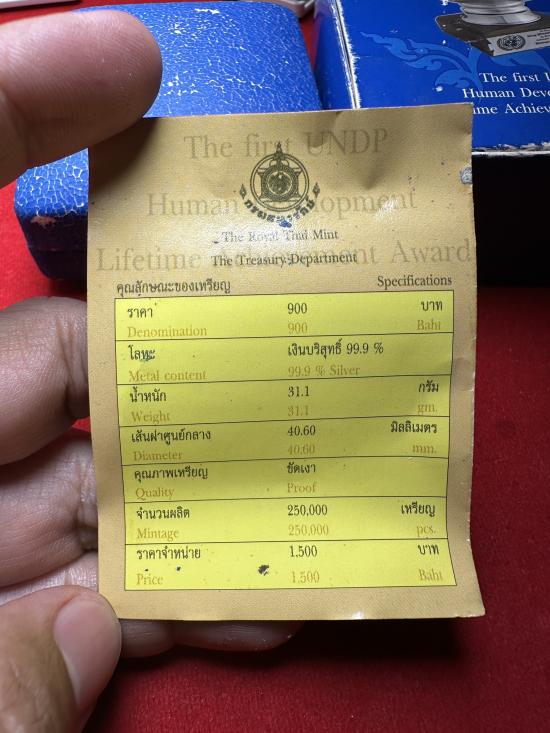 The first
Human Deve
ime Achiev
The first UNDP
Human Development
Lifetime Achievement Award
กรมธนารักษ์
The Royal Thai Mint
The Treasury Department
คุณลักษณะของเหรียญ Specifications
ราคา 900 บาท
Denomination 900 Baht
โลหะ เงินบริสุทธิ์ 99.9 %
Metal content 99.9 % Silver
น้ำหนัก 31.1 กรัม
Weight 31.1 gm.
เส้นผ่าศูนย์กลาง 40.60 มิลลิเมตร
Diameter 40.60 mm.
คุณภาพเหรียญ ขัดเงา
Quality Proof
จำนวนผลิต 250,000 เหรียญ
Mintage 250,000 pcs.
ราคาจำหน่าย 1,500 บาท
Price 1,500 Baht